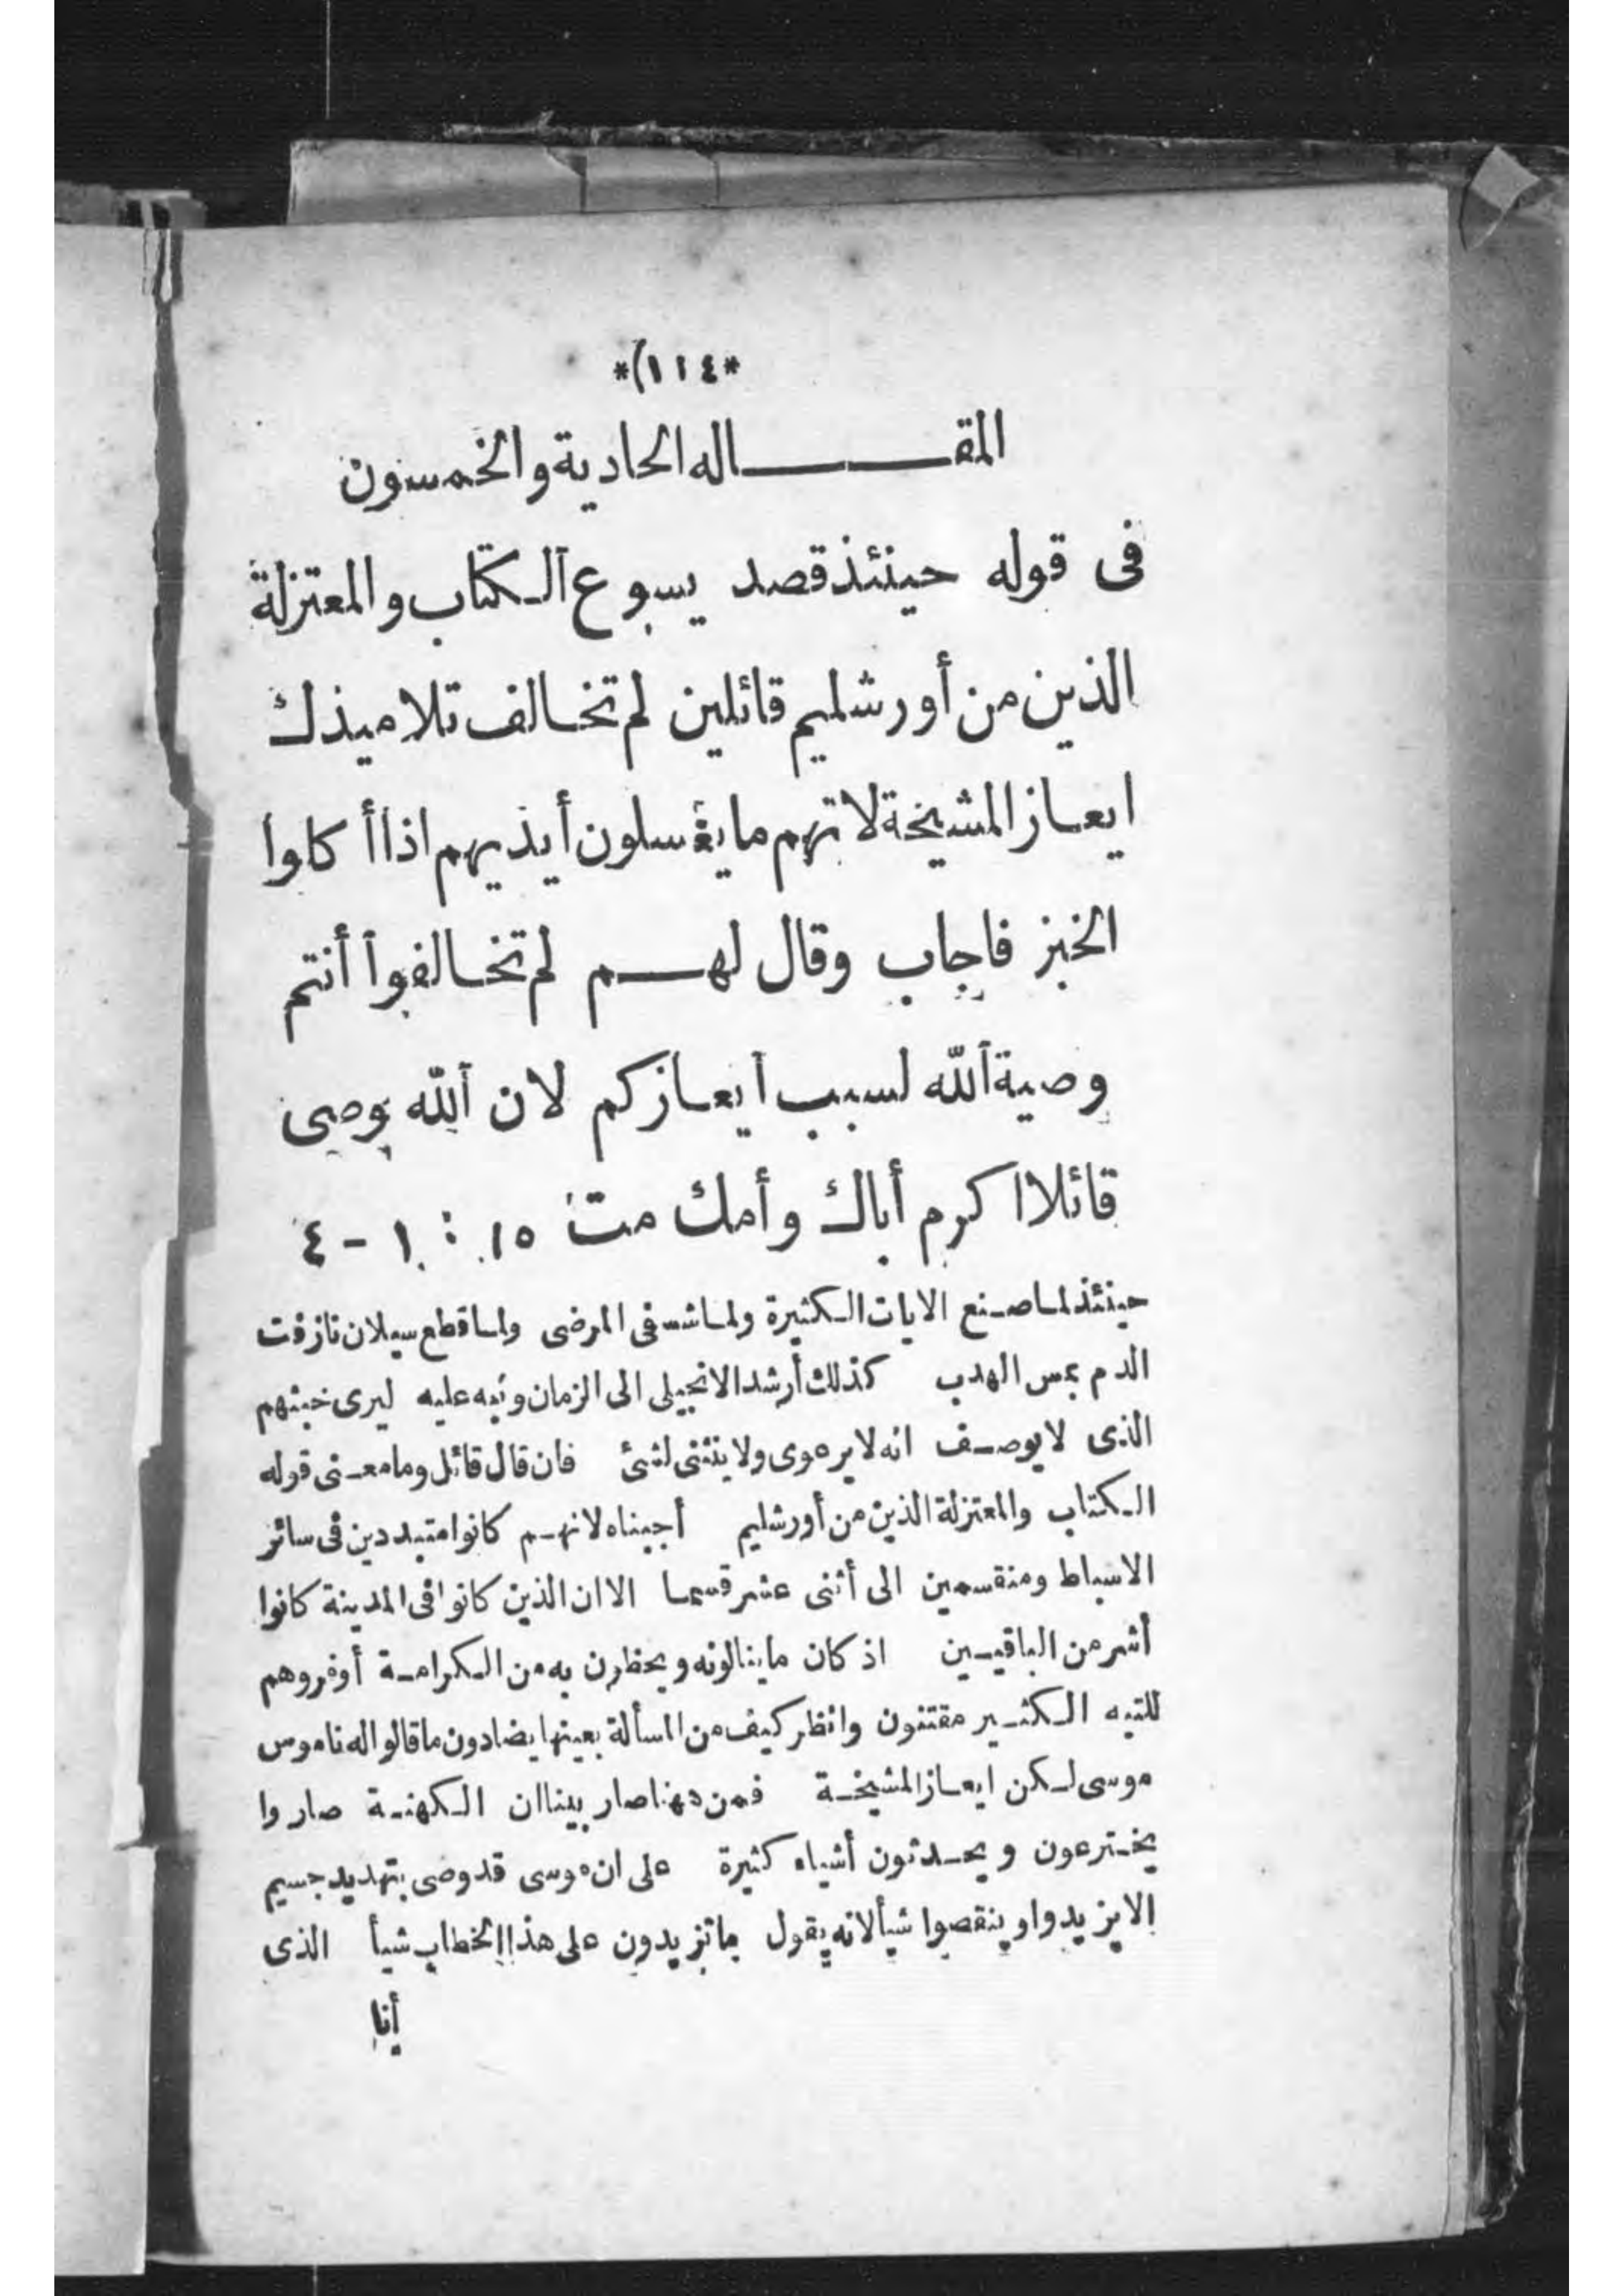 *(١١٤*
المقـــاله الحادية والخمسون
فى قوله حينئذ قصد يسوع آلكتاب والمعتزلة
الذين من أورشليم قائلين لم تخالف تلاميذك
ايعاز المشيخة لانهم ما يغسلون أيذيهم اذا أكلوا
الخبز فاجاب وقال لهم لم تخالفوا أنتم
وصية آلله لسبب ايعازكم لان آلله يوصى
قائلا اكرم أباك وأمك مت ١٥ : ١ - ٤
حينئذ لما صنع الايات الكثيرة ولما شفى المرضى ولما قطع سيلان نازفت
الدم بمس الهدب كذلك أرشد الانجيلى الى الزمان ونبه عليه ليرى خبثهم
الذى لا يوصف انه لا يرعوى ولا ينثنى لشئ فان قال قائل وما معنى قوله
الكتاب والمعتزلة الذين من أورشليم أجبناه لانهم كانوا متبددين فى سائر
الاسباط ومنقسمين الى أثنى عشر قسما الا ان الذين كانوا فى المدينة كانوا
أشر من الباقيين اذ كان ما ينالونه ويحظون به من الكرامة أوفر وهم
للتيه الكثير مقتنون وانظر كيف من المسألة بعينها يضادون ما قالوا له ناموس
موسى لكن ايعاز المشيخة فمن ههنا صار بينا ان الكهنة صاروا
يخترعون ويحدثون أشياء كثيرة على ان موسى قد وصى بتهديد جسيم
الا يزيدوا وينقصوا شيأ لانه يقول ما تزيدون على هذا الخطاب شيأ الذى
أنا